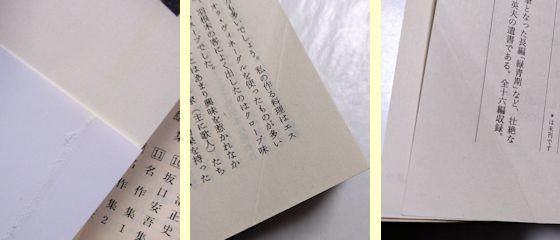 正史
10 坂口安吾集
11 名作集1
名作集2
が多いでしょう。私の作る料理はエス
ヴィネーグルを使ったものが多い
羽根木の客によく出したのはクローブ味
ープでした。
はあまり興味を惹かれなか
家（主に歌人）たち
味を持った
*は未刊です
筆となった長編「緑青期」など、壮絶な
英夫の遺書である。全十六編収録。